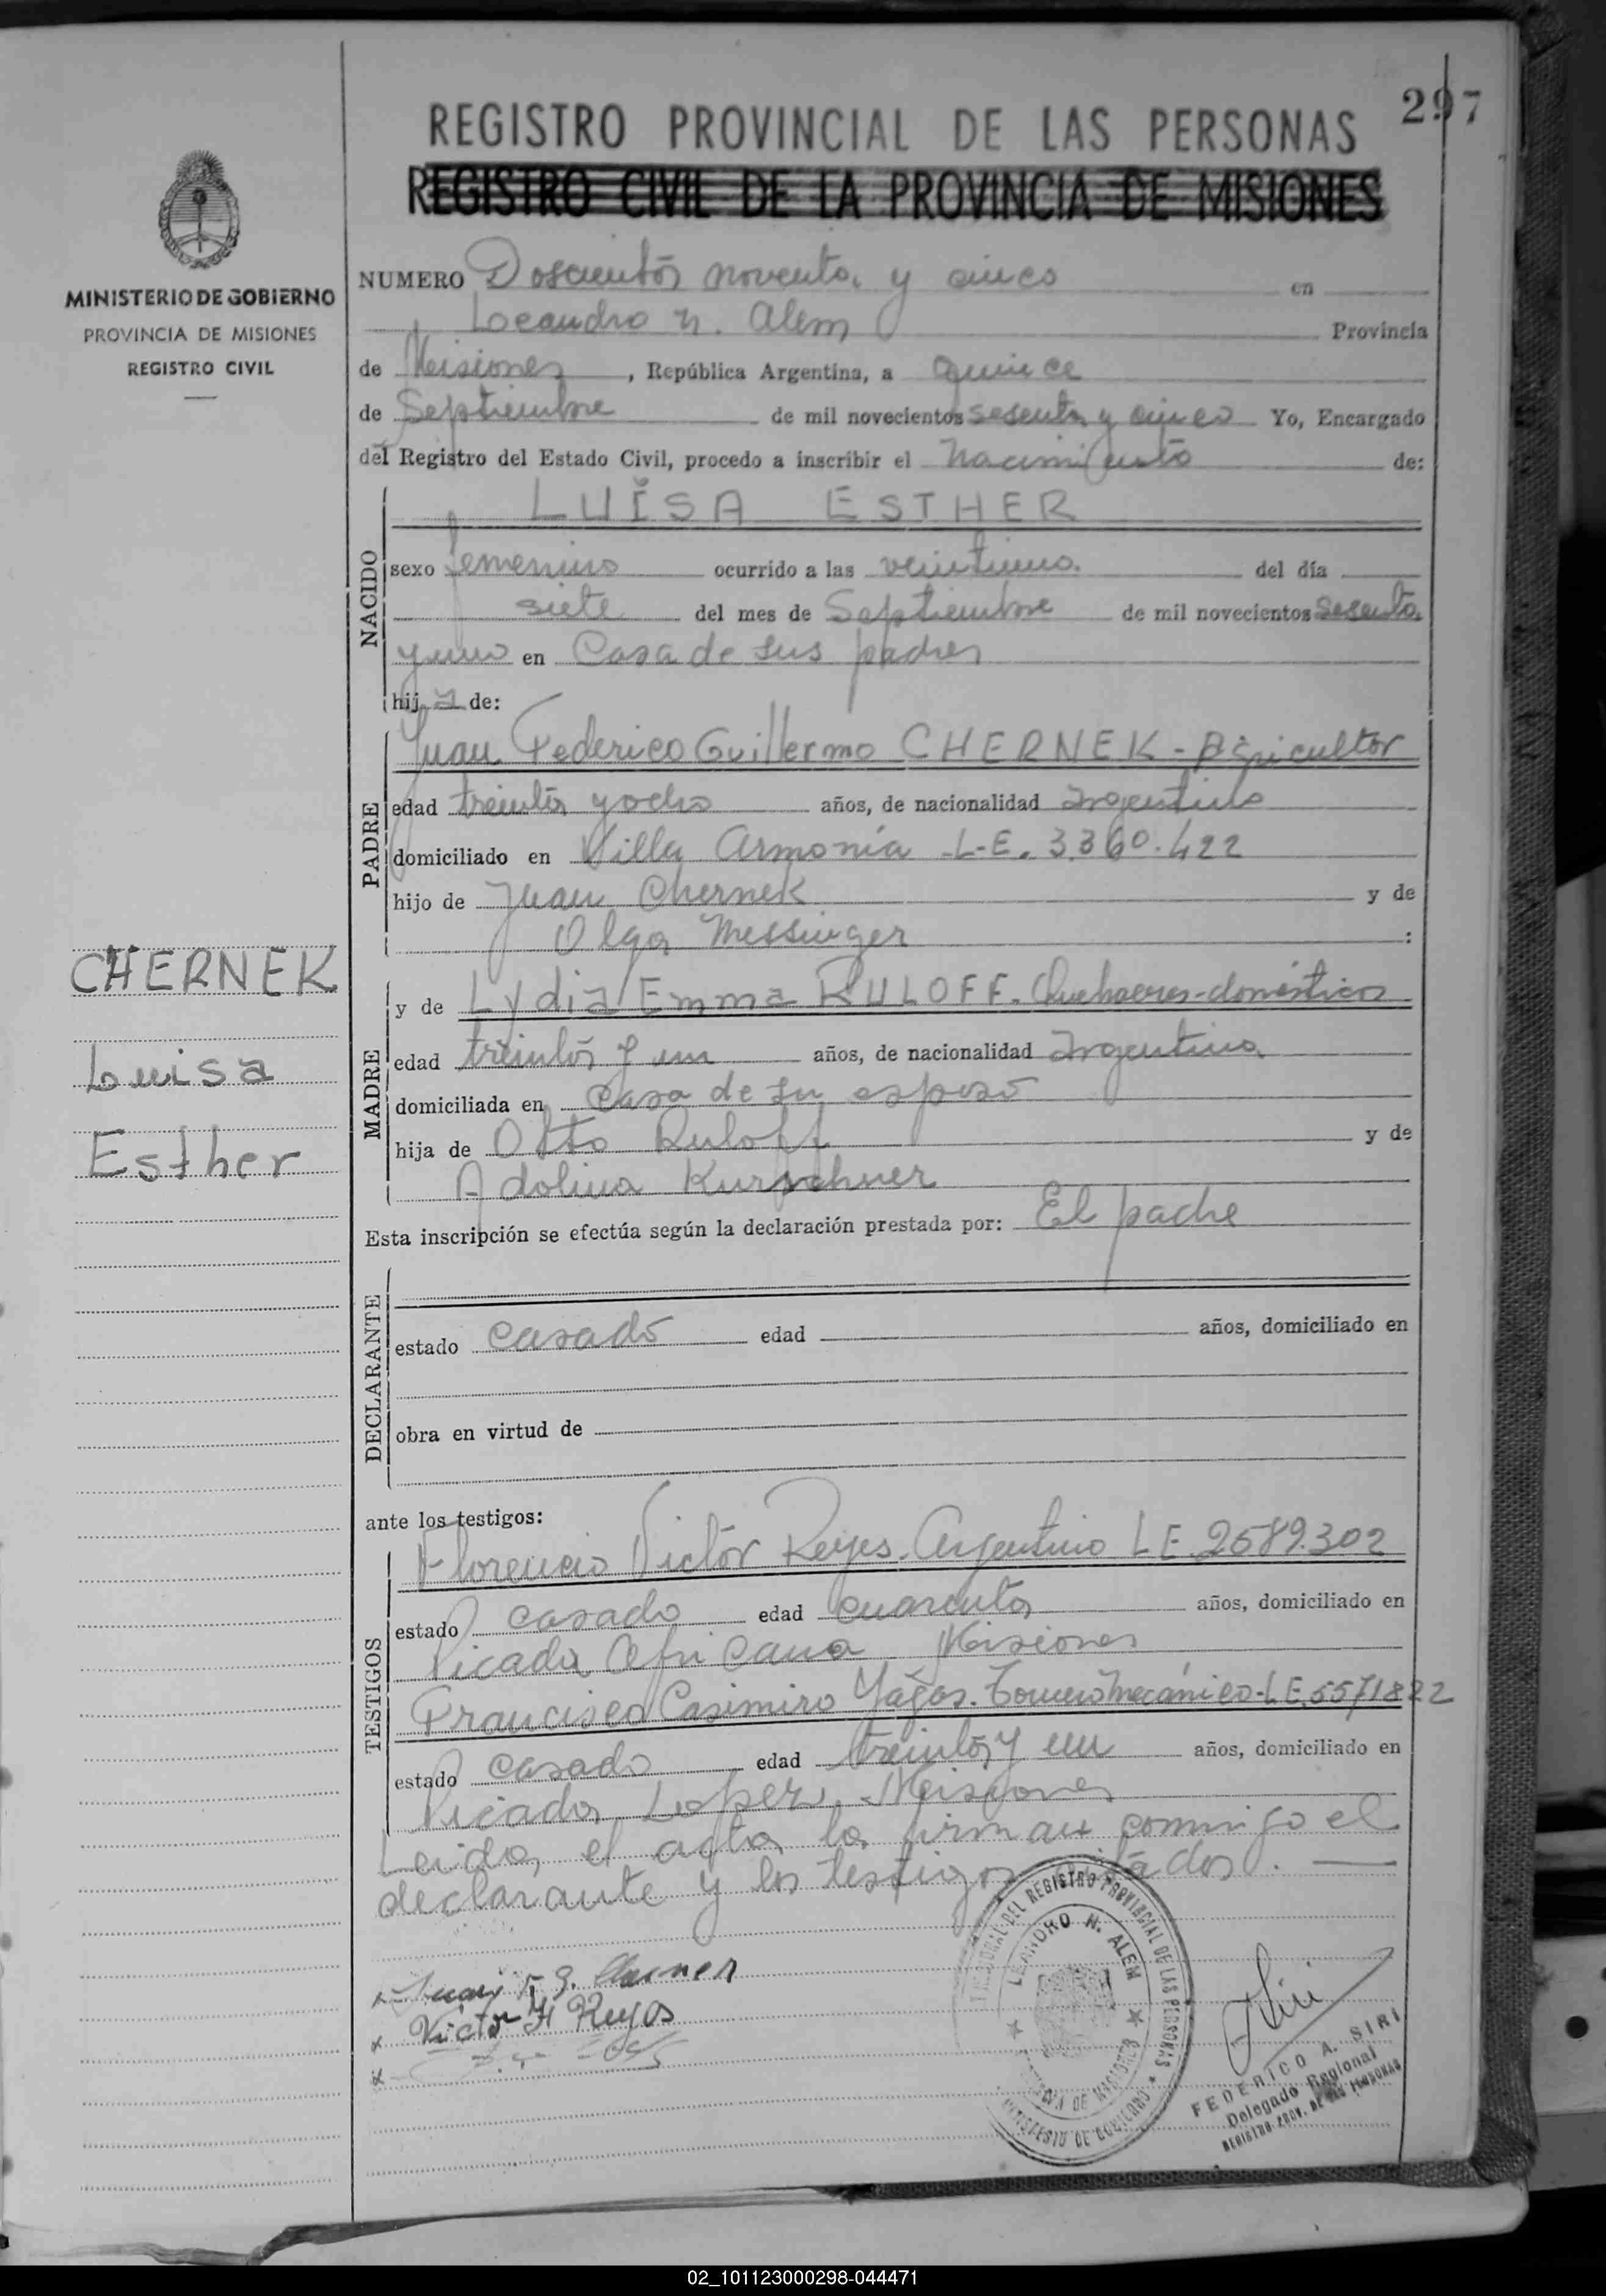 297
REGISTRO PROVINCIAL DE LAS PERSONAS
REGISTRO CIVIL DE LA PROVINCIA DE MISIONES
MINISTERIO DE GOBIERNO
PROVINCIA DE MISIONES
REGISTRO CIVIL
NUMERO Doscientos noventa y cinco en
Leandro N. Alem Provincia
de Misiones, República Argentina, a quince
de Septiembre de mil novecientos sesenta y cinco Yo, Encargado
del Registro del Estado Civil, procedo a inscribir el nacimiento de:
NACIDO
LUISA ESTHER
sexo femenino ocurrido a las veintiuno. del día
siete del mes de Septiembre de mil novecientos sesenta
y uno en Casa de sus padres
hija de:
PADRE
Juan Federico Guillermo CHERNEK - Agricultor
edad treinta y ocho años, de nacionalidad argentino
domiciliado en Villa Armonía L-E. 3.360.422
hijo de Juan Chernek y de
Olga Messinger :
CHERNEK
Luisa
Esther
MADRE
y de Lydia Emma RULOFF. Quehaceres-domésticos
edad treinta y un años, de nacionalidad argentina
domiciliada en casa de su esposo
hija de Otto Ruloff y de
Adolina Kurschner
Esta inscripción se efectúa según la declaración prestada por: El padre
DECLARANTE
estado casado edad años, domiciliado en
obra en virtud de
ante los testigos:
TESTIGOS
Florencio Victor Reyes. Argentino L E. 2589.302
estado casado edad cuarenta años, domiciliado en
Picada Africana Misiones
Francisco Casimiro Yagas. Tornero Mecánico - L E. 5571822
estado casado edad treinta y un años, domiciliado en
Picada Lopez, Misiones
Leida el acta la firman conmigo el
declarante y los testigos citados.
Juan F. G.
Victor F Reyes
DEL REGISTRO PROVINCIAL DE LAS PERSONAS
LEANDRO N. ALEM
MINISTERIO DE GOBIERNO
FEDERICO A. SIRI
Delegado Regional
REGISTRO PROV. DE LAS PERSONAS
02_101123000298-044471